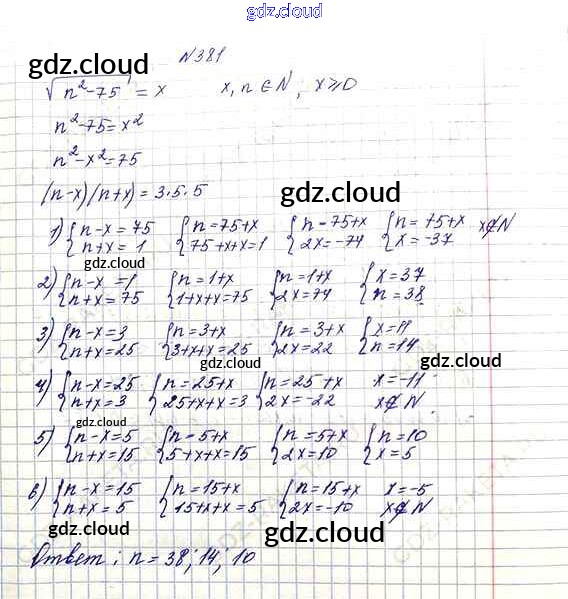 gdz.cloud
№381
gdz.cloud
√n²-75 = x    x, n ∈ N; x ≥ 0
gdz.cloud
n²-75=x²
n²-x²=75
(n-x)(n+x)=3·5·5
gdz.cloud
1) {n-x=75 n+x=1 {n=75+x 75+x+x=1 {n=75+x 2x=-74 {n=75+x x=-37 x∉N
gdz.cloud
2) {n-x=1 n+x=75 {n=1+x 1+x+x=75 {n=1+x 2x=74 {x=37 n=38
gdz.cloud
3) {n-x=3 n+x=25 {n=3+x 3+x+x=25 {n=3+x 2x=22 {x=11 n=14
gdz.cloud
gdz.cloud
4) {n-x=25 n+x=3 {n=25+x 25+x+x=3 {n=25+x 2x=-22 x=-11 x∉N
gdz.cloud
5) {n-x=5 n+x=15 {n=5+x 5+x+x=15 {n=5+x 2x=10 {n=10 x=5
gdz.cloud
6) {n-x=15 n+x=5 {n=15+x 15+x+x=5 {n=15+x 2x=-10 x=-5 x∉N
gdz.cloud
gdz.cloud
Ответ: n=38; 14; 10